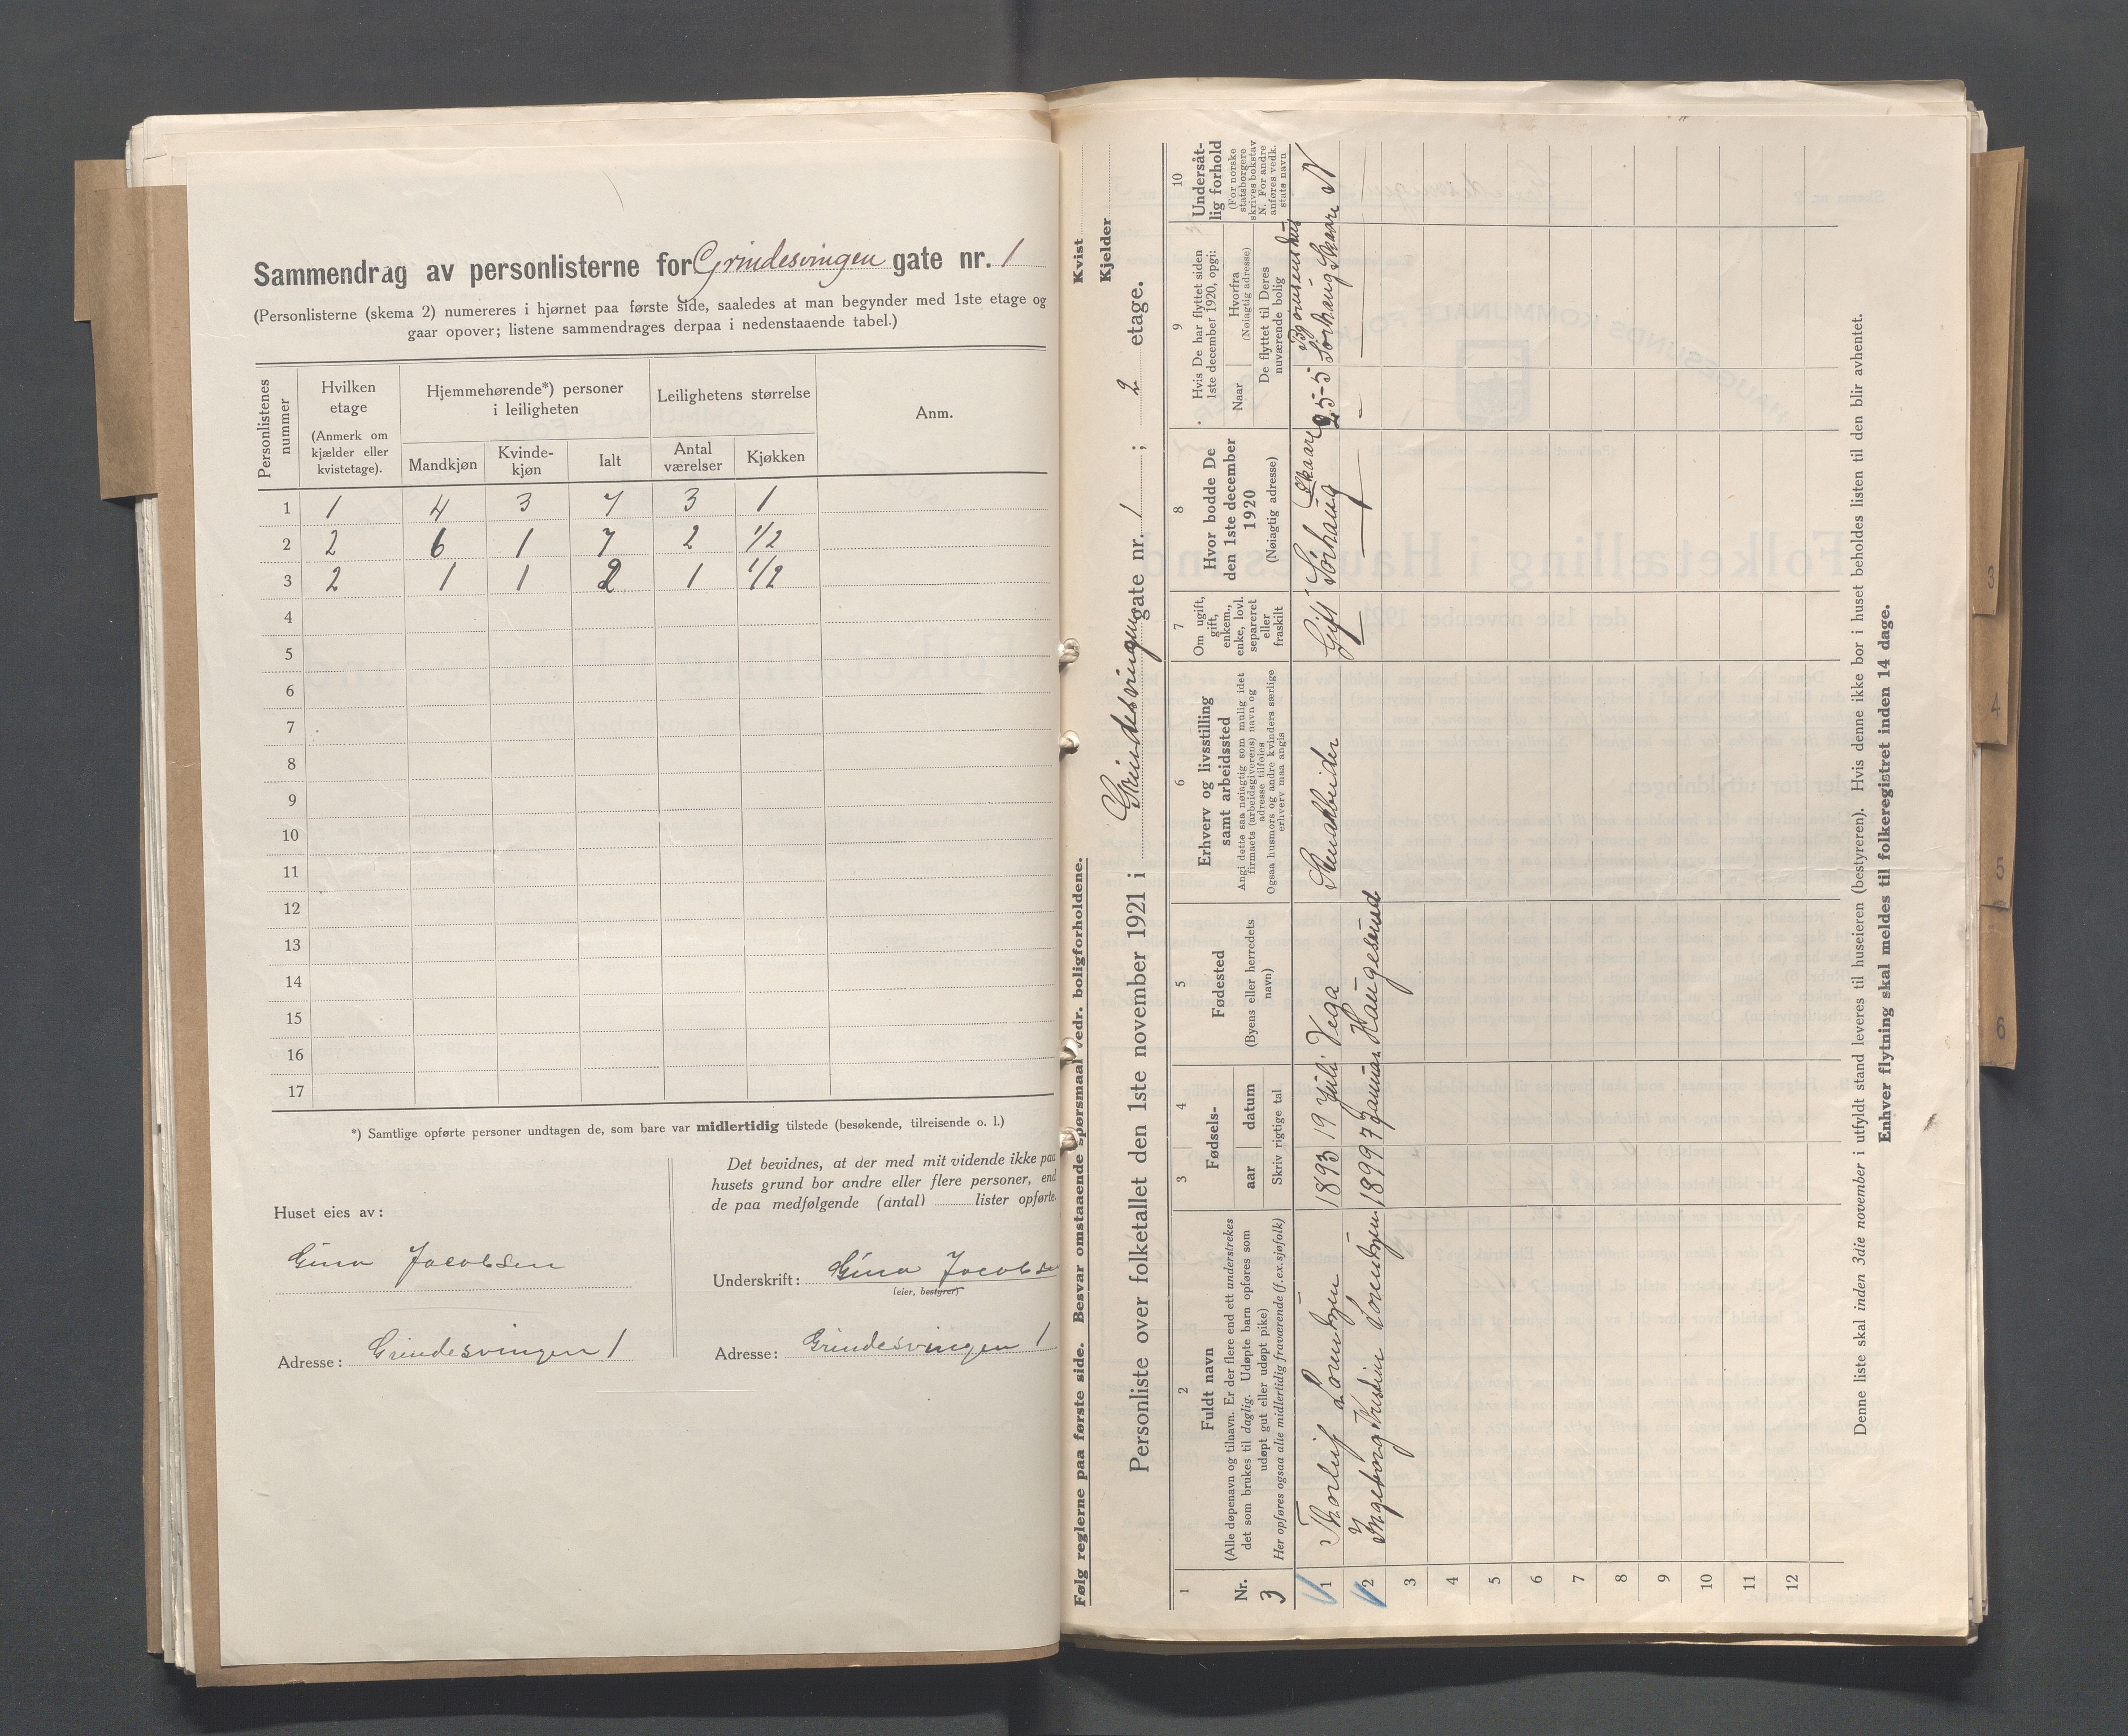 Sammendrag av personlisterne for Grindesvingen gate nr. 1
(Personlisterne (skema 2) numereres i hjørnet paa første side, saaledes at man begynder med 1ste etage og
gaar opover; listene sammendrages derpaa i nedenstaaende tabel.)
Personlistenes nummer
Hvilken etage
(Anmerk om kjælder eller kvistetage).
Hjemmehørende*) personer i leiligheten
Leilighetens størrelse
Anm.
Mandkjøn
Kvindekjøn
Ialt
Antal værelser
Kjøkken
1 1 4 3 7 3 1
2 2 6 1 7 2 1/2
3 2 1 1 2 1 1/2
4
5
6
7
8
9
10
11
12
13
14
15
16
17
*) Samtlige opførte personer undtagen de, som bare var midlertidig tilstede (besøkende, tilreisende o. l.)
Det bevidnes, at der med mit vidende ikke paa
husets grund bor andre eller flere personer, end
de paa medfølgende (antal) lister opførte.
Huset eies av:
Gina Jacobsen
Adresse: Grindesvingen 1
Underskrift: Gina Jacobsen
(eier, bestyrer)
Adresse: Grindesvingen 1
Følg reglerne paa første side. Besvar omstaaende spørsmaal vedr. boligforholdene.
Kvist
Kjelder
Personliste over folketallet den 1ste november 1921 i Grindesvingen gate nr. 1 ; 2 etage.
1
Nr.
3
2
Fuldt navn
(Alle døpenavn og tilnavn. Er der flere end ett understrekes
det som brukes til daglig. Udøpte barn opføres som
udøpt gut eller udøpt pike)
Her opføres ogsaa alle midlertidig fraværende (f.ex. sjøfolk)
3 4
Fødsels-
aar datum
Skriv rigtige tal
5
Fødested
(Byens eller herredets navn)
6
Erhverv og livsstilling
samt arbeidssted
Angi dette saa nøiagtig som mulig idet
firmaets (arbeidsgiverens) navn og
adresse tilføies
Ogsaa husmors og andre kvinders særlige
erhverv maa angis
7
Om ugift,
gift,
enkem.,
enke, lovl.
separeret
eller
fraskilt
8
Hvor bodde De
den 1ste december
1920
(Nøiagtig adresse)
9
Hvis De har flyttet siden
1ste december 1920, opgi:
Naar
Hvorfra
(Nøiagtig adresse)
De flyttet til Deres
nuværende bolig
10
Undersåtlig forhold
(For norske
statsborgere
skrives bokstav
N. For andre
anføres vedk.
stats navn
1 Thorleif Lorentzen 1893 19 Juli Vega Gift Sørhaug Skaare 25-5 Sørhaug Skaare N
2 Ingeborg Kristine Lorentzen 1899 7 Januar Haugesund
3
4
5
6
7
8
9
10
11
12
Denne liste skal inden 3die november i utfyldt stand leveres til huseieren (bestyreren). Hvis denne ikke bor i huset beholdes listen til den blir avhentet.
Enhver flytning skal meldes til folkeregistret inden 14 dage.
3
4
5
6